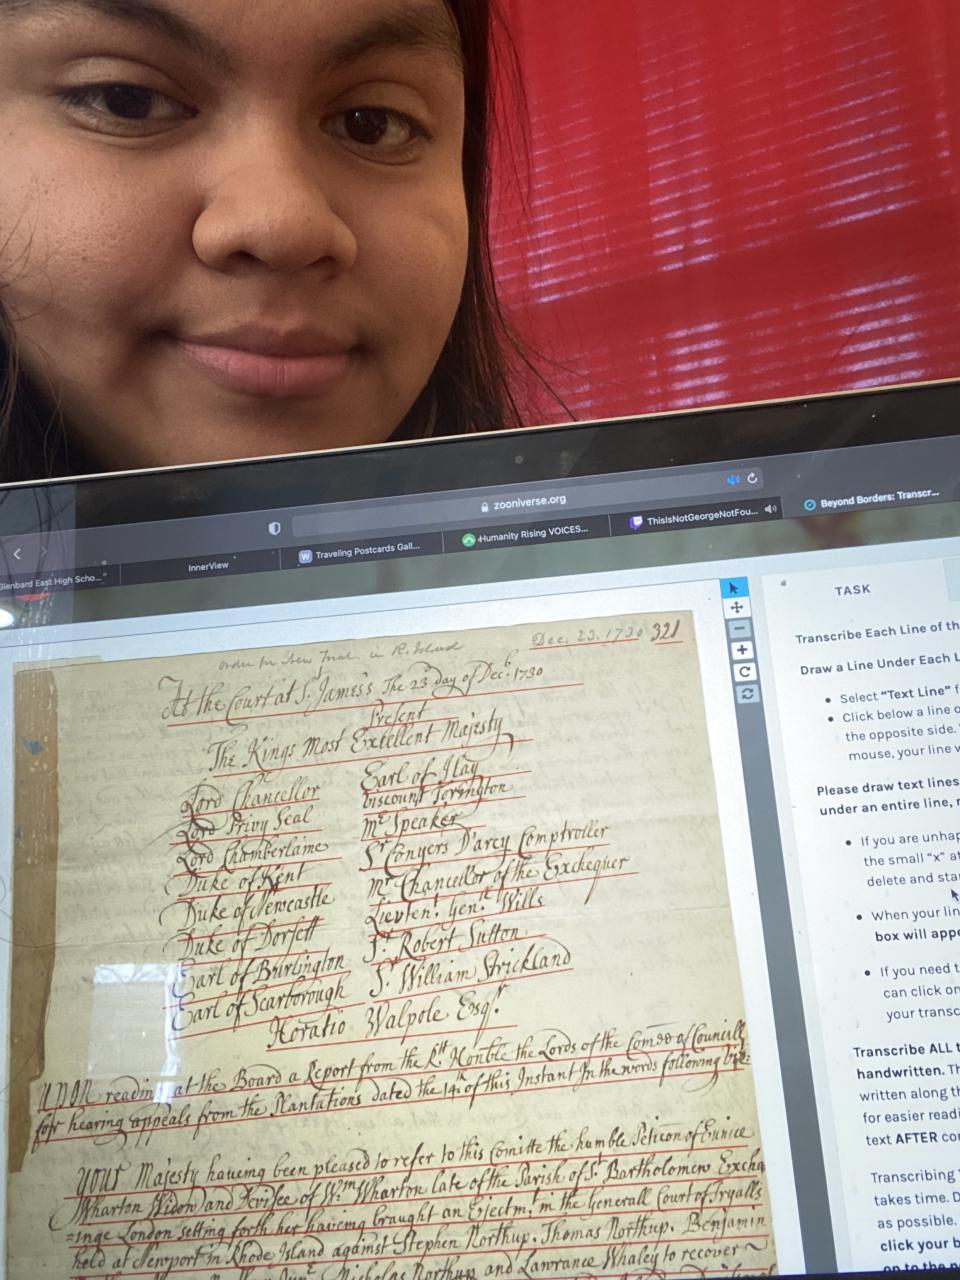 zooniverse.org
Glenbard East High Scho...
InnerView
W Traveling Postcards Gall...
Humanity Rising VOICES...
ThisIsNotGeorgeNotFou...
Beyond Borders: Transcr...
order for New Trial in R. Island
Dec. 23. 1730 321
At the Court at St. James's The 23 day of Decb. 1730
Present
The Kings Most Excellent Majesty
Lord Chancellor
Lord Privy Seal
Lord Chamberlaine
Duke of Kent
Duke of Newcastle
Duke of Dorsett
Earl of Burlington
Earl of Scarborough
Earl of Ilay
Viscount Torington
Mr Speaker
Sr Conyers D'arcy Comptroller
Mr Chancellor of the Exchequer
Lievtent. Genll Wills
Sr. Robert Sutton
Sr. William Strickland
Horatio Walpole Esqr.
UPON reading at the Board a Report from the Rt Honble the Lords of the Comee of Councill
for hearing appeals from the Plantations dated the 14th of this Instant In the words following
YOUR Majesty having been pleased to refer to this Comitte the humble Peticon of Eunice
Wharton Widow and Devisee of Wm. Wharton late of the Parish of St Bartholomew Excha
=inge London setting forth her haveing braught an Ejectmt. in the Generall Court of Tryalls
held at Newport in Rhode Island against Stephen Northup. Thomas Northup. Benjamin
Nicholas Northup and Lawrance Whaley to recover
TASK
Transcribe Each Line of th
Draw a Line Under Each L
• Select “Text Line” f
• Click below a line o
the opposite side.
mouse, your line w
Please draw text lines
under an entire line, r
• If you are unhap
the small “x” at
delete and star
• When your lin
box will appe
• If you need t
can click on
your transc
Transcribe ALL t
handwritten. Th
written along th
for easier readi
text AFTER cor
Transcribing
takes time. D
as possible.
click your b
on to the n